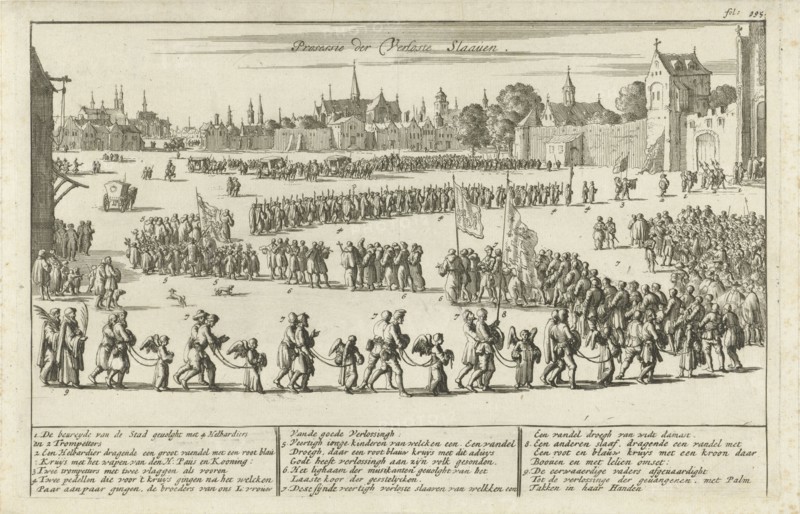 fol: 995
Processie der Verloste Slaauen.
1. De beureyde van de Stad gevolght met 4 Helbardiers
en 2 Trompetters
2. Een Helbardier dragende een groot vaendel met een root blau
Kruys met het wapen van den N. Paus en Kooning:
3 Twee trompatters met twee vlaggen als vooren
4 Twee pedellen die voor 't kruys gingen na het welcken
Paar aan paar gingen de broeders van ons L. vrouw
Vande goede Verlossingh:
5 Veertigh ionge kinderen van welcken een Een vandel
Droegh, daar een root blauw kruys met dit aduys
Godt heeft verlossingh aan zijn volk gesonden.
6. Het lighaam der musikanten gevolght van het
Laaste koor der geestelycken.
7. Dese synde veertigh verloste slaaven van welkken een
Een vandel droegh van wilt damast.
8. Een anderen slaaf, dragende een vandel met
Een root en blauw kruys met een kroon daar
Boouen en met lelien omset.
9. De eerwaerdige vaders afgeuaardight
Tot de verlossinge der geuangenen, met Palm
Takken in haar Handen